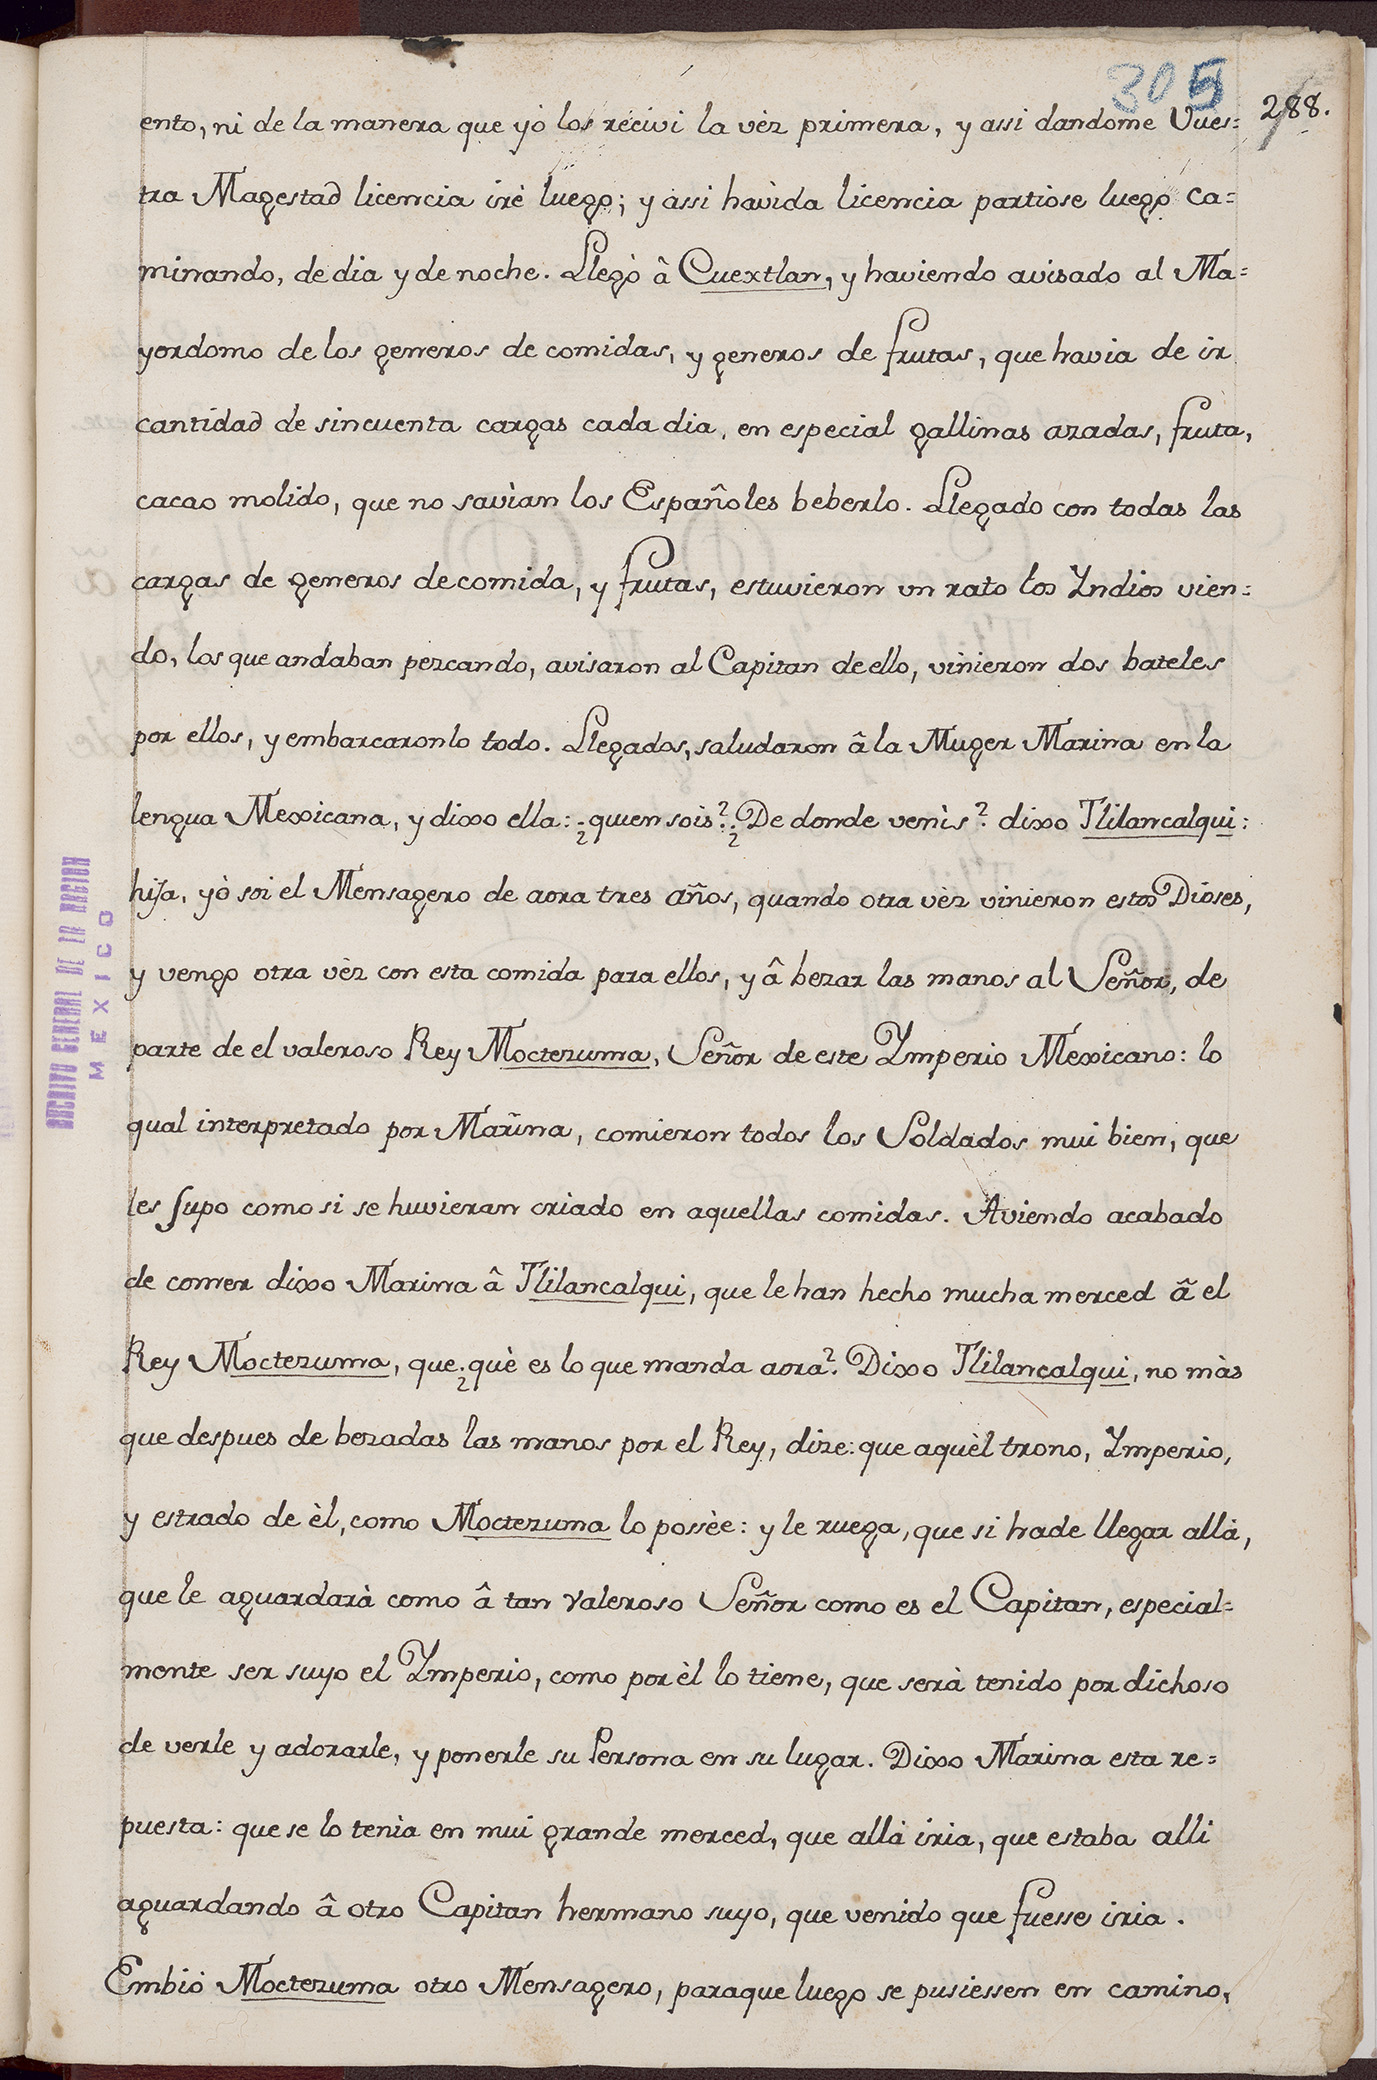 305
288.
ento, ni de la manera que yò los recivi la vèz primera, y assi dandome Vues=
tra Magestad licencia irè luego; y assi havida licencia partiose luego ca=
minando, de dia y de noche. Llegò â Cuextlan, y haviendo avisado al Ma=
yordomo de los generos de comidas, y generos de frutas, que havia de ir
cantidad de sincuenta cargas cada dia, en especial gallinas azadas, fruta,
cacao molido, que no savian los Españoles beberlo. Llegado con todas las
cargas de generos de comida, y frutas, estuvieron un rato los Yndios vien=
do, los que andaban pezcando, avisaron al Capitan de ello, vinieron dos bateles
por ellos, y embarcaronlo todo. Llegados, saludaron â la Muger Marina en la
lengua Mexicana, y dixo ella: ¿quien sois? ¿De donde venìs? dixo Tlilancalqui:
hija, yò soi el Mensagero de aora tres años, quando otra vèz vinieron estos Dioses,
y vengo otra vèz con esta comida para ellos, y â bezar las manos al Señor, de
parte de el valeroso Rey Moctezuma, Señor de este Ymperio Mexicano: lo
qual interpretado por Marina, comieron todos los Soldados mui bien, que
les supo como si se huvieran criado en aquellas comidas. Aviendo acabado
de comer dixo Marina â Tlilancalqui, que le han hecho mucha merced â el
Rey Moctezuma, que ¿què es lo que manda aora? Dixo Tlilancalqui, no màs
que despues de bezadas las manos por el Rey, dize: que aquèl trono, Ymperio,
y estrado de èl, como Moctezuma lo possèe: y le ruega, que si hade llegar allà,
que le aguardarà como â tan valeroso Señor como es el Capitan, especial=
mente ser suyo el Ymperio, como por èl lo tiene, que serà tenido por dichoso
de verle y adorarle, y ponerle su Persona en su lugar. Dixo Marina esta re=
puesta: que se lo tenìa en mui grande merced, que allà iria, que estaba alli
aguardando â otro Capitan hermano suyo, que venido que fuesse iria.
Embiò Moctezuma otro Mensagero, paraque luego se pusiessen en camino,
ARCHIVO GENERAL DE LA NACION
MEXICO